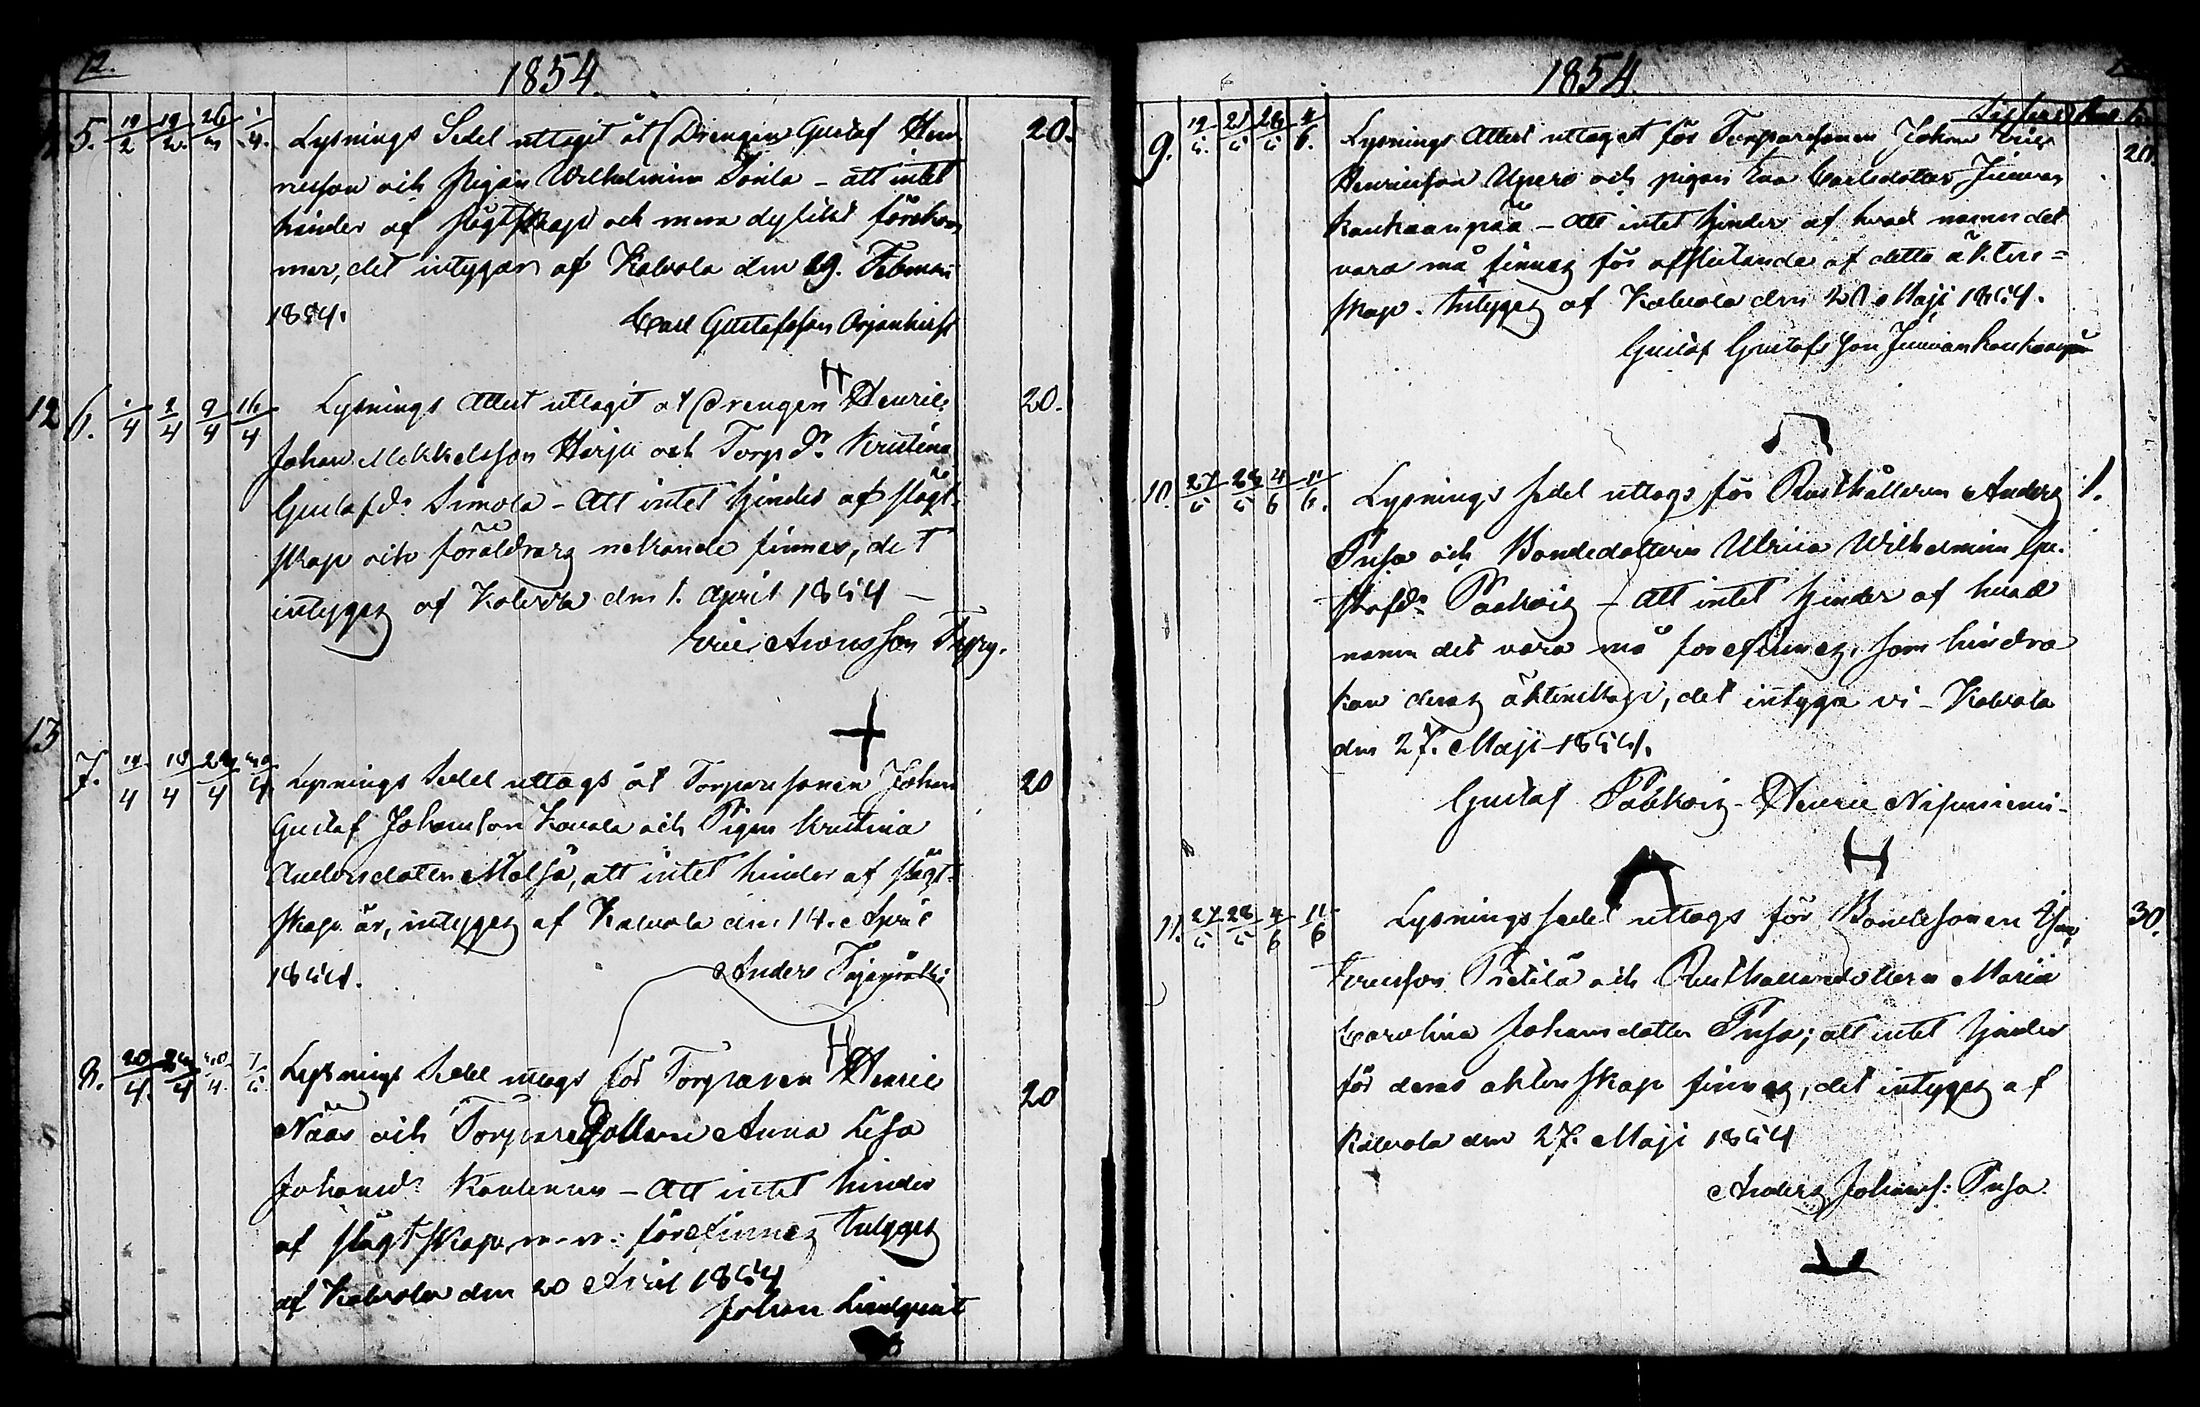 12.
1854.
5. 19/2 19/2 26/2 /4. Lysnings Sedel uttagit åt Drengen Gustaf Hen- 20.
ricsson och Pigan Wilhelmina Toila – att intet
hinder af slägtskap och mera dylikt förekom
mer, det intygar af Kalvola den 19. Februari
1854. Carl Gustafsson
12 6. 1/4 2/4 9/4 16/4 Lysnings Attest uttagit åt Drengen Henric 20.
Johan Mickelsson Harju och Torpd:r Kristina
Gustafd:r Simola – Att intet hinder af slägt-
skap och föräldrars nekande finnes, det
intygas af Kalvola den 1. April 1854 –
Eric Aronsson
13
7. 14/4 18/4 23/4 30/4 Lysnings Sedel uttags åt Torparesonen Johan 20
Gustaf Johansson Kanala och Pigan Kristina
Andersdotter Mälsä, att intet hinder af slägt-
skap är, intygas af Kalvola den 14. April
1854. Anders
8. 20/4. 23/4 30/4. 7/5 Lysnings Sedel uttags för Torparen Henric 20
Nääs och Torparedottern Anna Lisa
Johansd:r – Att intet hinder
af slägtskap m. m: förefinnes intygas
af Kalvola den 20 April 1854
Johan Lindqvist
1854.
9. 19/5. 21/5 28/5 4/6. Lysnings Attest uttaget för Torparesonen Johan Eric 20.
Henricsson Upero och pigan Eva Carlsdotter Junnan
kaukaanpää – Att intet hinder af hvad namn det
vara må finnes för afslutande af detta äkten=
skap. Intygas af Kalvola den 20 Maji 1854.
Gustaf Gustafsson Junnankaukaanpää
10. 27/5 28/5 4/6 11/6. Lysnings sedel uttags för Rusthållaren Anders 1.
Pusa och Bondedottern Ulrica Wilhelmina Gu-
stafd:r – Att intet hinder af hvad
namn det vara må förefinnes, som hindra
kan deras äktenskap, det intyga vi – Kalvola
den 27. Maji 1854.
Gustaf Henric Nisuniemi –
11. 27/5 28/5 4/6 11/6 Lysningssedel uttags för Bondesonen 30.
Ericsson Pietilä och Rusthållaredottern Maria
Carolina Johansdotter Pusa; att intet hinder
för deras äktenskap finnes, det intygas af
Kalvola den 27. Maji 1854
Anders Johanss: Pusa